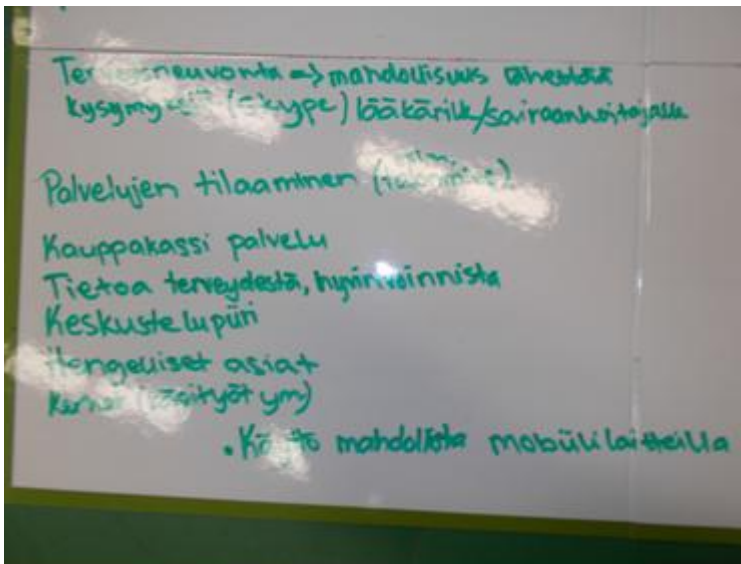 Terveysneuvonta => mahdollisuus lähettää
kysymyksiä (skype) lääkärille/sairaanhoitajalle
Palvelujen tilaaminen
Kauppakassi palvelu
Tietoa terveydestä, hyvinvoinnista
Keskustelupiiri
Hengelliset asiat
(käsityöt ym)
• Käyttö mahdollista mobiililaitteilla